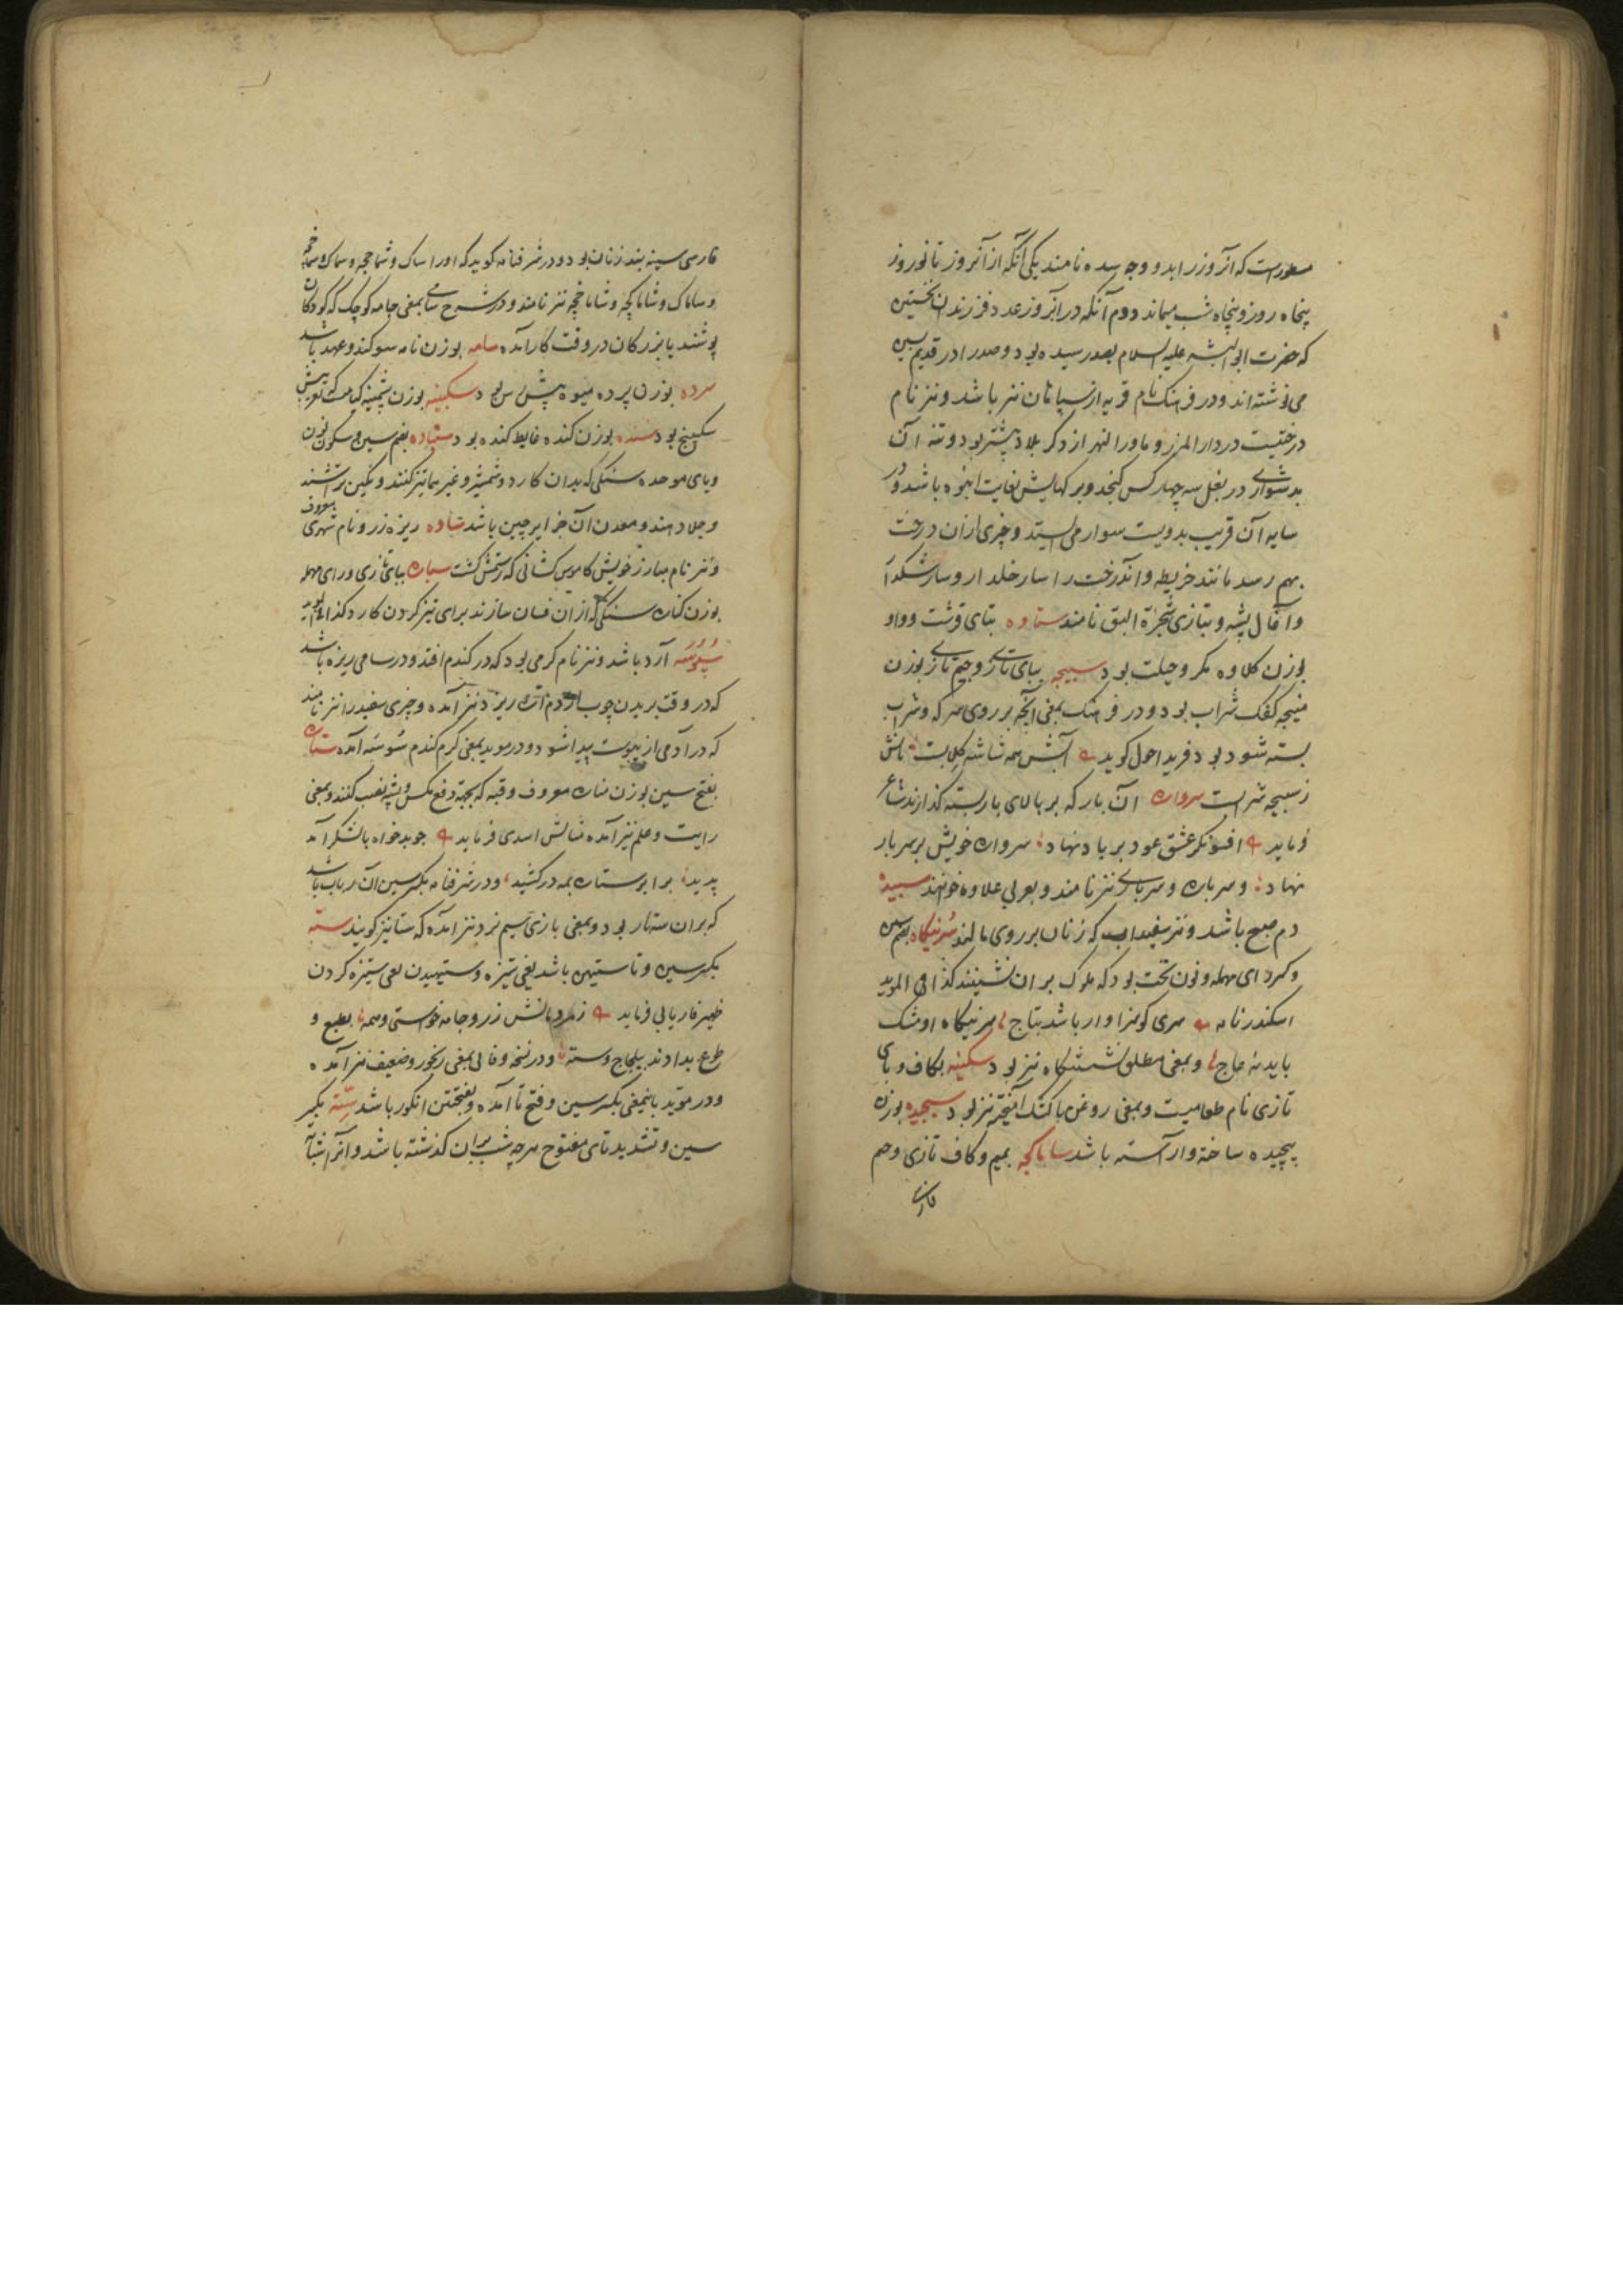 مسطورست که آنروز را بدو وجه سده نامند یکی آنکه از آنروز تا نوروز
پنجاه روز و پنجاه شب میماند دوم آنکه در آنروز عدد فرزندان نخستین
که حضرت ابوالبشر علیه السلام بصد رسیده بود و صد را در قدیم بسین
می نوشته اند و در فرهنک نام قریه از سپاهان نیز باشد و نیز نام
درختیست در دارالمرز و ماورا النهر از دکر بلاد بیشتر بود و تنه آن
بدشواری در بغل سه چهار کس کنجد و برکهایش بغایت انبوه باشد و در
سایه آن قریب بدویست سوار می ایستد و چیزی از آن درخت
بهم رسد مانند خریطه و آندرخت را سار خلدار و سارشکدار
و آقال پشه و بتازی شجرة البق نامند ستاوه بتای قرشت و واو
بوزن کلاوه مکر و حیلت بود سبیجه ببای تازی و جیم تازی بوزن
منیجه کفک شراب بود و در فرهنک بمعنی آنچه بر روی سرکه و شراب
بسته شود بود فرید احول کوید آتش همه شاشه کلابست تابش
ز سبیجه شرابست سرواره آن بار که بر بالای بار بسته کذارند شاعر
فرماید افسونکر عشق عود بر باد نهاد سرواره خویش بر سر بار
نهاد و سرباره و سرباری نیز نامند و بعربی علاوه خوانند سپیده
دم صبح باشد و نیز سفیداب که زنان بر روی مالند سرینکاه بضم سین
و کسر رای مهمله و نون تخت بود که ملوک بر آن نشینند کذا فی الموید
اسکندر نامه سری کو سزاوار باشد بتاج سرینکاه او مشک
باید نه عاج و بمعنی مطلق نشستنکاه نیز بود سکبینه بکاف و بای
تازی نام طعامیست و بمعنی روغن با کشک آمیخته نیز بود سبجیده بوزن
پیچیده ساخته و آراسته باشد ساماکچه بمیم و کاف تازی و جیم
فارسی
فارسی سینه بند زنان بود و در شرفنامه کوید که او را ساک و شماخچه و سماک و سماخچه
و ساماک و شاماکچه و شاماخچه نیز نامند و در شرح سامی بمعنی جامه کوچک که کودکان
پوشند یا بزرکان در وقت کار آمده سامه بوزن نامه سوکند و عهد باشد
سرده بوزن پرده میوه پیش رس بود سکبینه بوزن پشمینه کیاهیست که تعریبش
سکبینج بود سنده بوزن کنده غایط کنده بود سنباده بضم سین و سکون نون
و بای موحده سنکی که بدان کارد و شمشیر و غیرهما تیز کنند و نکین تراشند
و جلا دهند و معدن آن جزایر چین باشد ساوه ریزه زر و نام شهری معروف
و نیز نام مبارز خویش کاموس کشانی که رستمش کشت سباره ببای تازی و رای مهمله
بوزن کناره سنکی که از آن فسان سازند برای تیز کردن کارد کذا فی الموید
سبوسه آرد باشد و نیز نام کرمی بود که در کندم افتد و در سامی ریزه باشد
که در وقت بریدن چوب از دم اره ریزد نیز آمده و چیزی سفید را نیز نامند
که در آدمی از یبوست پیدا شود و در موید بمعنی کرم کندم سوسه آمده ستاره
بفتح سین بوزن مناره معروف و قبه که بجهة دفع مکس و پشه نصب کنند و بمعنی
رایت و علم نیز آمده مثالش اسدی فرماید چو بدخواه با لشکر آمد
پدید برابر ستاره بمه در کشید و در شرفنامه بکسر سین آن رباب باشد
که بر آن سه تار بود و بمعنی بازی سیم نرد نیز آمده که ستا نیز کویند سته
بکسر سین و تا ستیهش باشد یعنی ستیزه و ستیهیدن یعنی ستیزه کردن
ظهیر فاریابی فرماید ز مرد مانش زر و جامه خواستی و همه بطبع و
طوع بدادند بیلجاج و سته و در نسخه وفایی بمعنی رنجور و ضعیف نیز آمده
و در موید باینمعنی بکسر سین و فتح تا آمده و بفتحتین انکور باشد سته بکسر
سین و تشدید تای مفتوح هر چه شب بر آن کذشته باشد و آنرا شبانه